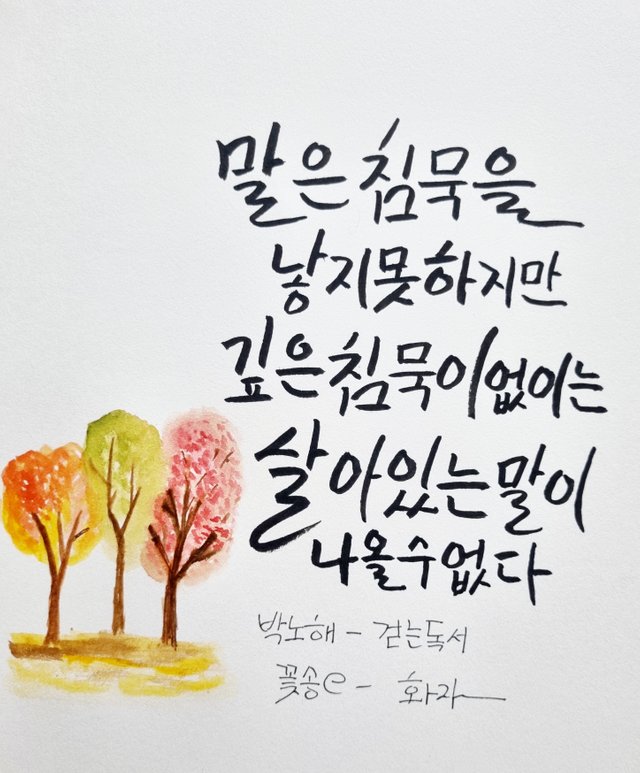 말은 침묵을
낳지 못하지만
깊은 침묵이 없이는
살아있는 말이
나올 수 없다
박노해 - 걷는독서
꽃송e - 화자